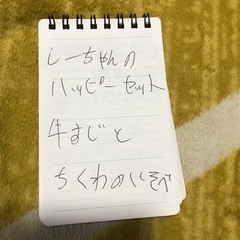 しーちゃんの
ハッピーセット
牛すじと
ちくわのいそべ